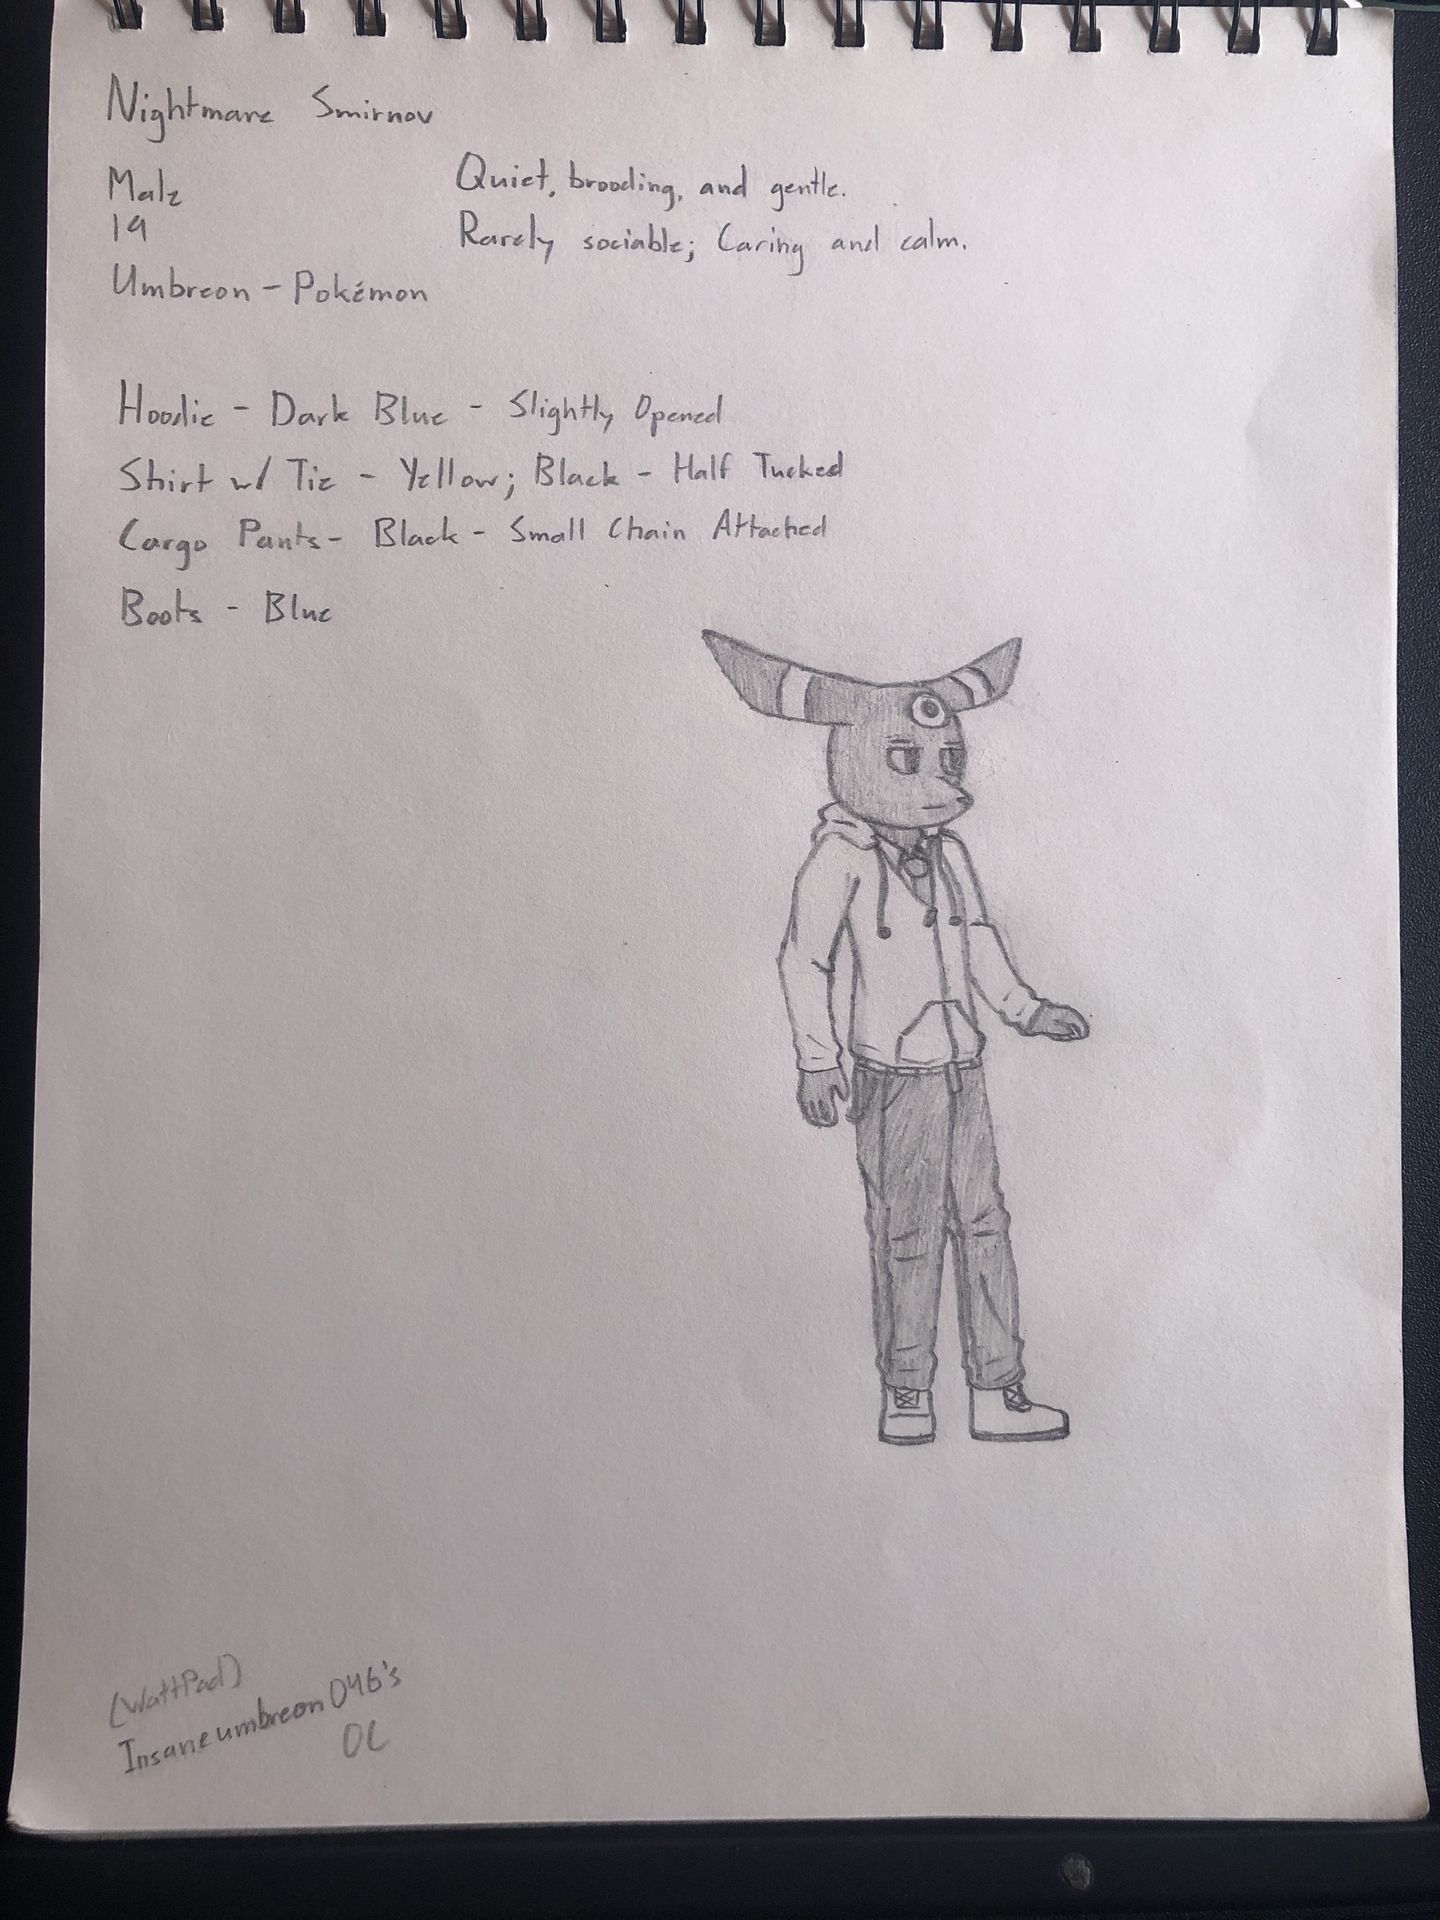 Nightmare Smirnov
Male
19
Umbreon - Pokémon
Quiet, brooding, and gentle.
Rarely sociable; Caring and calm.
Hoodie - Dark Blue - Slightly Opened
Shirt w/ Tie - Yellow; Black - Half Tucked
Cargo Pants - Black - Small Chain Attached
Boots - Blue
(WattPad)
Insaneumbreon046's
OC